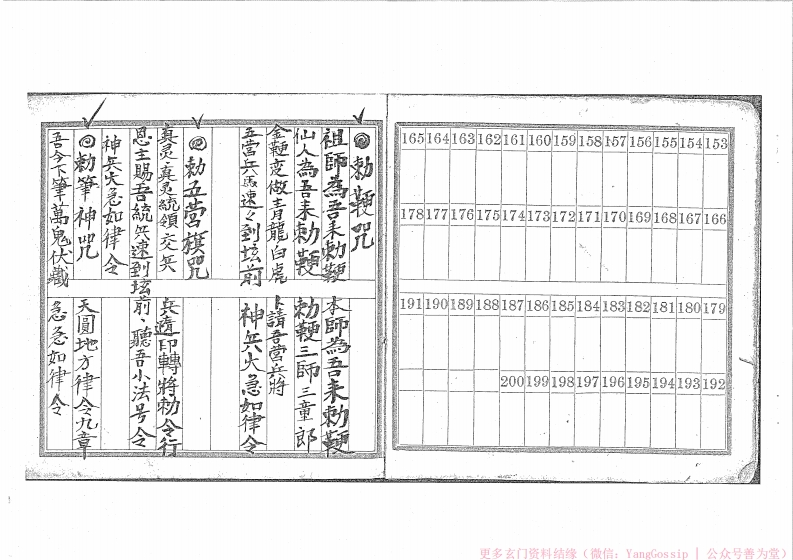 165 164 163 162 161 160 159 158 157 156 155 154 153
178 177 176 175 174 173 172 171 170 169 168 167 166
191 190 189 188 187 186 185 184 183 182 181 180 179
200 199 198 197 196 195 194 193 192
勅鞭咒
祖師為吾来勅鞭 本師為吾来勅鞭
仙人為吾来勅鞭 勅鞭三師三童郎
金鞭变做青龍白虎 卜請吾當兵將
五當兵馬速々到坛前 神兵火急如律令
勅五营旗咒
真灵真灵統領交兵 兵遁印轉將勅令行
恩主賜吾統兵速到坛前、聽吾小法号令
神兵火急如律令
勅筆神咒 天圓地方律令九章
吾今下筆萬鬼伏藏 急急如律令
更多玄门资料结缘（微信：YangGossip | 公众号善为堂）